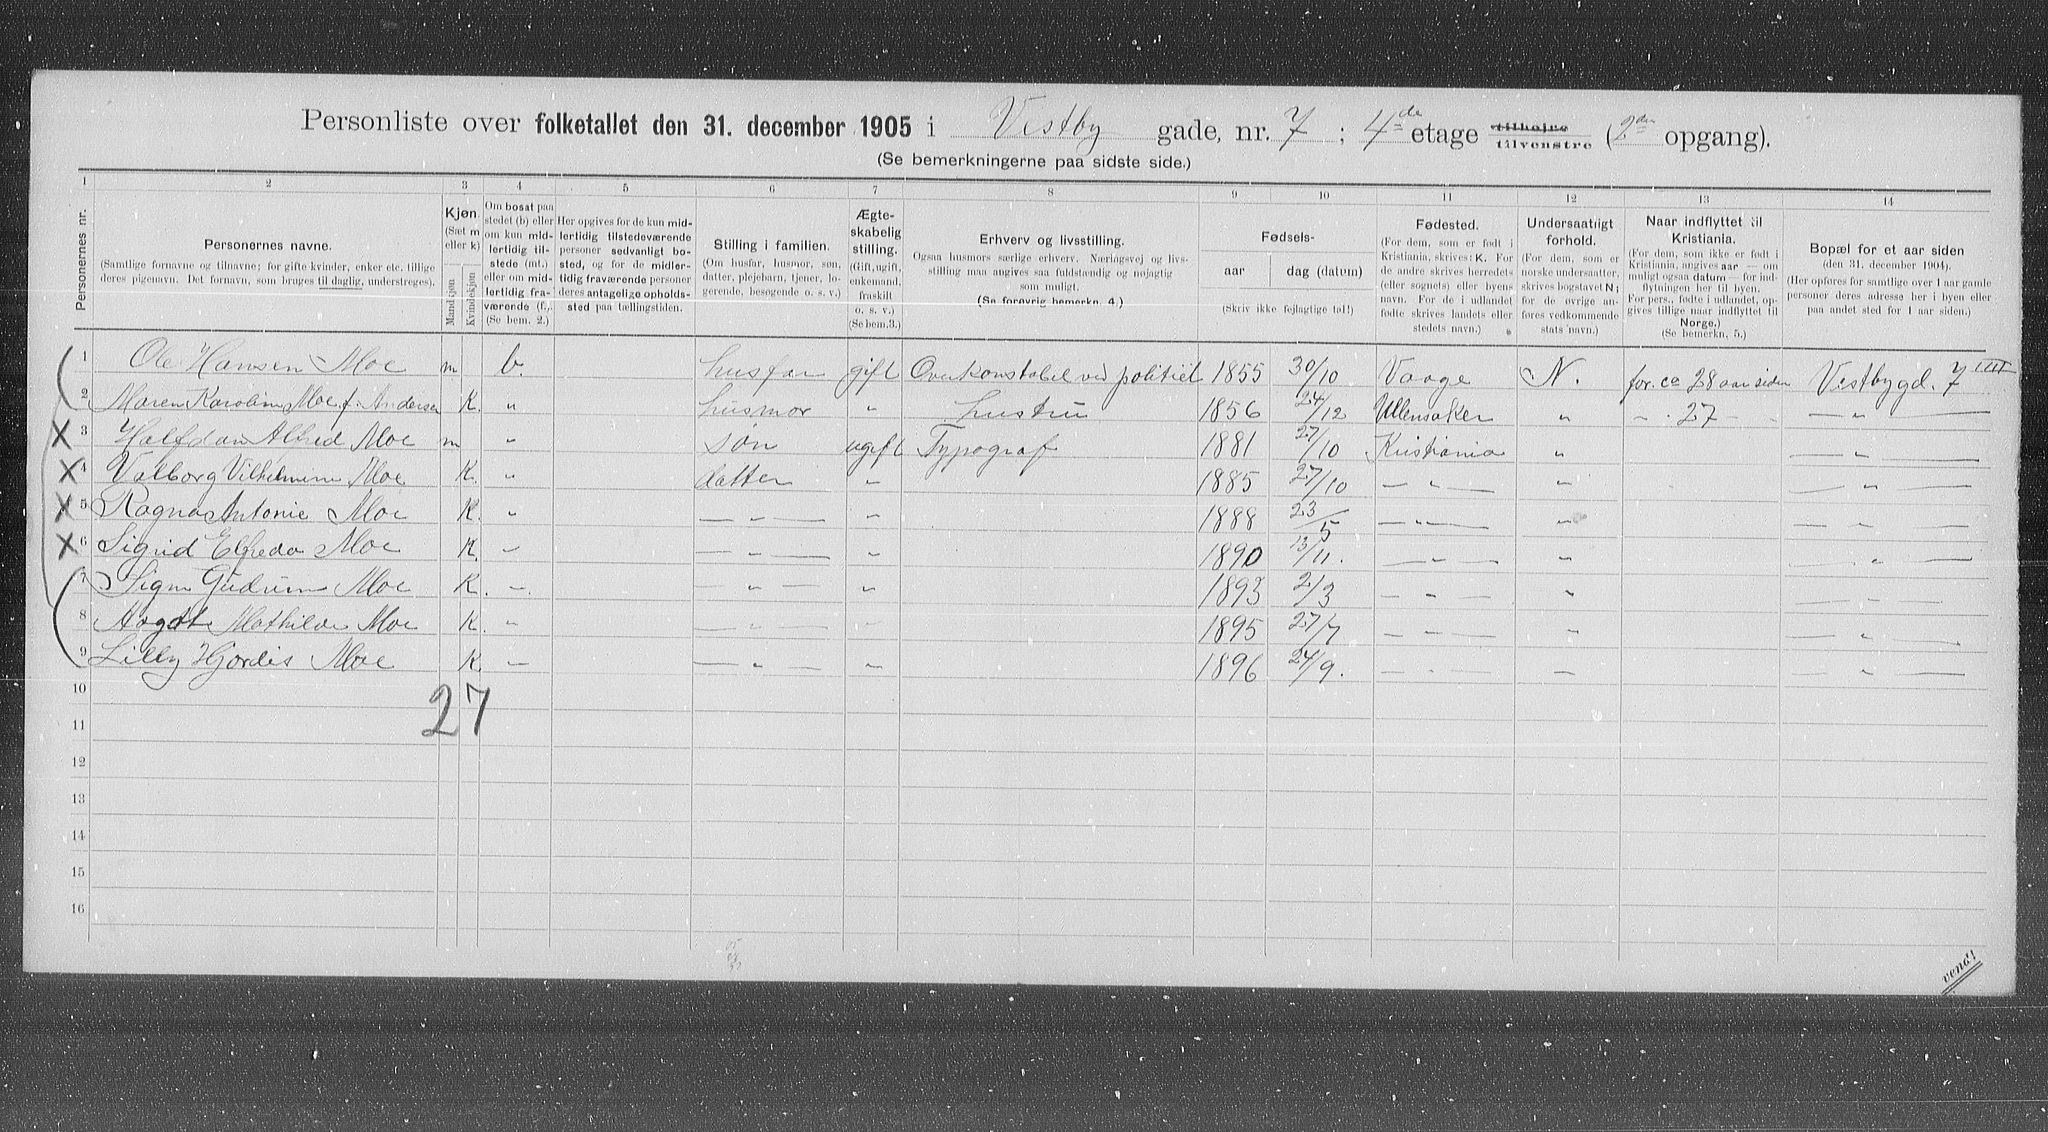 Personliste over folketallet den 31. december 1905 i Vestby gade, nr. 7 ; 4de etage tilhøjre tilvenstre (2den opgang).
(Se bemerkningerne paa sidste side.)
1 2 3 4 5 6 7 8 9 10 11 12 13 14
Personernes nr.
Personernes navne.
(Samtlige fornavne og tilnavne; for gifte kvinder, enker etc. tillige deres pigenavn. Det fornavn, som bruges til daglig, understreges).
Kjøn. (Sæt m eller k) Mandkjøn Kvindekjøn
Om bosat paa stedet (b) eller om kun midlertidig tilstede (mt.) eller om midlertidig fraværende (f.). (Se bem. 2.)
Her opgives for de kun midlertidig tilstedeværende personer sedvanligt bosted, og for de midlertidig fraværende personer deres antagelige opholdssted paa tællingstiden.
Stilling i familien.
(Om husfar, husmor, søn, datter, plejebarn, tjener, logerende, besøgende o. s. v.)
Ægteskabelig stilling.
(Gift, ugift, enkemand, fraskilt o. s. v.) (Se bem. 3.)
Erhverv og livsstilling.
Ogsaa husmors særlige erhverv. Næringsvej og livsstilling maa angives saa fuldstændig og nøjagtig som muligt.
(Se forøvrig bemerkn. 4.)
Fødsels-
aar dag (datum)
(Skriv ikke fejlagtige tal!)
Fødested.
(For dem, som er født i Kristiania, skrives: K. For de andre skrives herredets (eller sognets) eller byens navn. For de i udlandet fødte skrives landets eller stedets navn.)
Undersaatligt forhold.
(For dem, som er norske undersaatter, skrives bogstavet N; for de øvrige anføres vedkommende stats navn.)
Naar indflyttet til Kristiania.
(For dem, som ikke er født i Kristiania, angives aar — om muligt ogsaa datum — for indflytningen her til byen. For pers., fødte i udlandet, opgives tillige naar indflyttet til Norge.)
(Se bemerkn. 5.)
Bopæl for et aar siden
(den 31. december 1904).
(Her opføres for samtlige over 1 aar gamle personer deres adresse her i byen eller paa andet sted for 1 aar siden.)
1 Ole Hansen Moe m b. husfar gift Overkonstabel ved politiet 1855 30/10 Vaage N. for ca 28 aar siden Vestbygd. 7 IIII
2 Maren Karoline Moe f. Andersen K. " husmor " hustru 1856 24/12 Ullensaker " - 27 - - — " —
X 3 Halfdan Alfred Moe m " søn ugift Typograf 1881 27/10 Kristiania " — " —
X 4 Valborg Vilhelmine Moe K. " datter " 1885 27/10 — " — " — " —
X 5 Ragna Antonie Moe K. " — " — " 1888 23/5 — " — " — " —
X 6 Sigrid Elfreda Moe K. " — " — " 1890 13/11. — " — " — " —
7 Signe Gudrun Moe K. " — " — " 1893 2/3 — " — " — " —
8 Aagot Mathilde Moe K. " — " — " 1895 27/7 — " — " — " —
9 Lilly Hjordis Moe K. — — " — " 1896 24/9. — " — " — " —
10
27
11
12
13
14
15
16
vend!